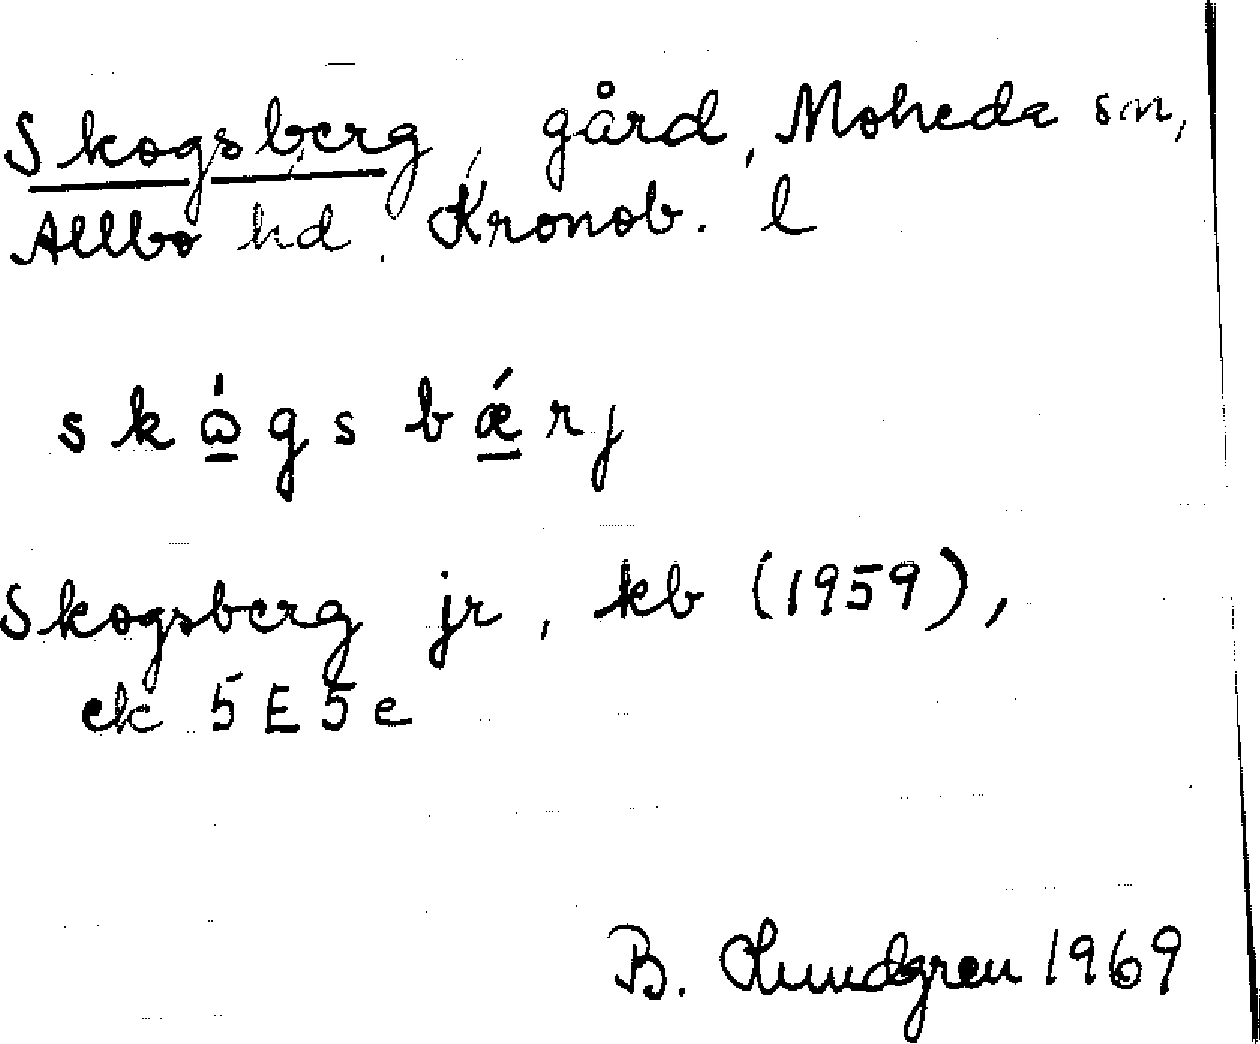 Skogsberg, gård, Moheda sn,
Allbo hd. Kronob. l
skώ̲gsbǽ̲rj
Skogsberg jr, kb (1959),
ek 5E5e
B. Lundgren 1969